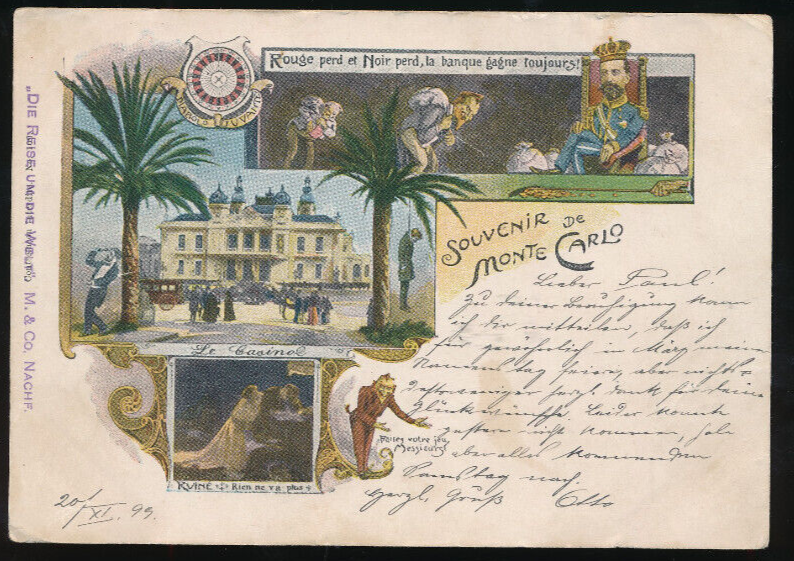 Rouge perd et Noir perd, la banque gagne toujours!
„DIE REISE UM DIE WELT" M. & CO. NACHF.
SOUVENIR DE
MONTE CARLO
Lieber Paul!
Zu deiner Beruhigung kann
ich dir mitteilen, daß ich
für gewöhnlich im März meinen
Namenstag feiere, aber nichts
destoweniger herzl. dank für deine
Glückwünsche. Leider konnte
gestern nicht kommen, hole
aber alles kommenden
Samstag nach.
Herzl. Gruß Otto
Le Casino
Faites votre jeu
Messieurs!
RUINE Rien ne va plus
20/XI. 99.